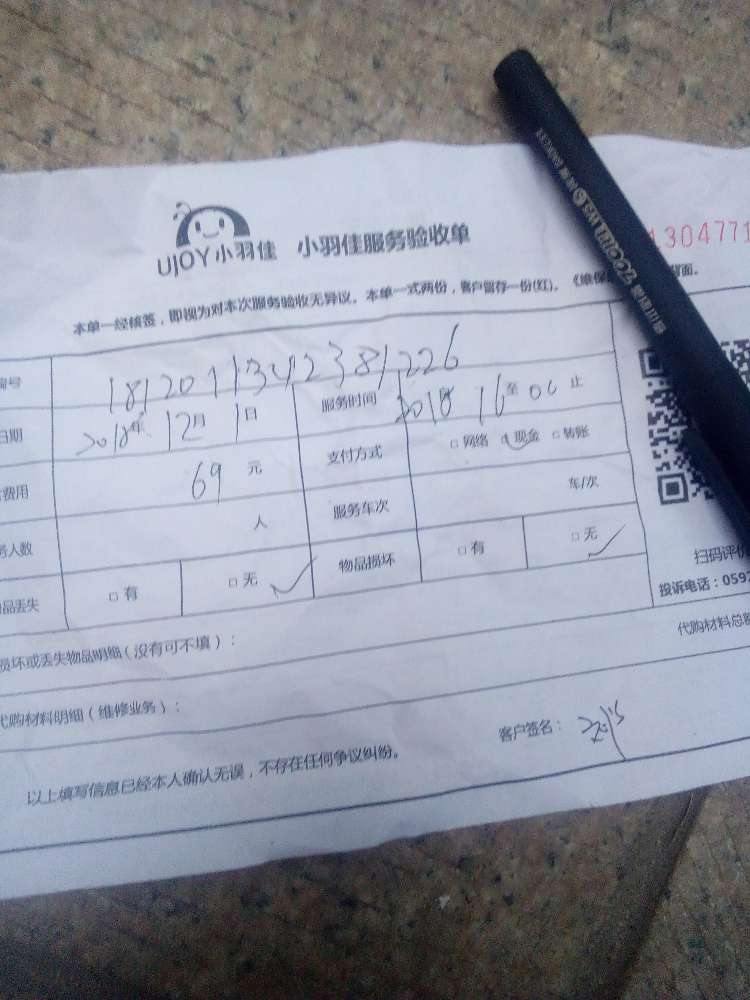 UJOY小羽佳 小羽佳服务验收单
1304771
本单一经核签，即视为对本次服务验收无异议。本单一式两份，客户留存一份(红)。《维保 背面。
编号 1812011342381226
日期 2018年 12月 1日 服务时间 2018 16 至 00 止
费用 69 元 支付方式 □网络 □现金 □转账
务人数 人 服务车次 车/次
品丢失 □有 □无 ✓ 物品损坏 □有 □无 ✓
扫码评价
投诉电话：0592
损坏或丢失物品明细（没有可不填）：
代购材料总额
代购材料明细（维修业务）：
客户签名：
以上填写信息已经本人确认无误，不存在任何争议纠纷。